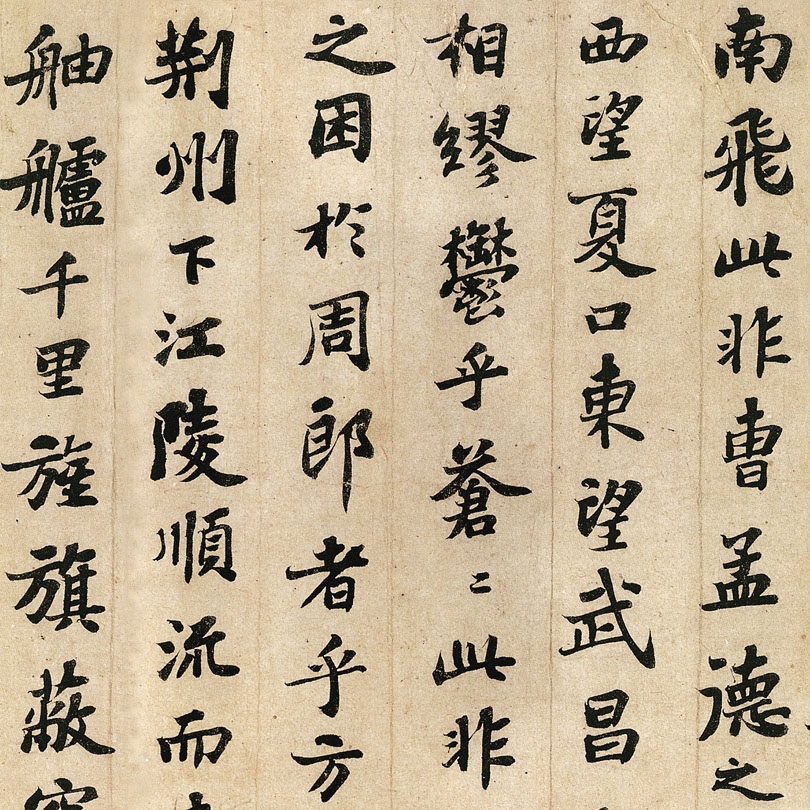 南飛此非曹孟德之
西望夏口東望武昌
相繆鬱乎蒼〻此非
之困於周郎者乎方
荆州下江陵順流而
舳艫千里旌旗蔽空